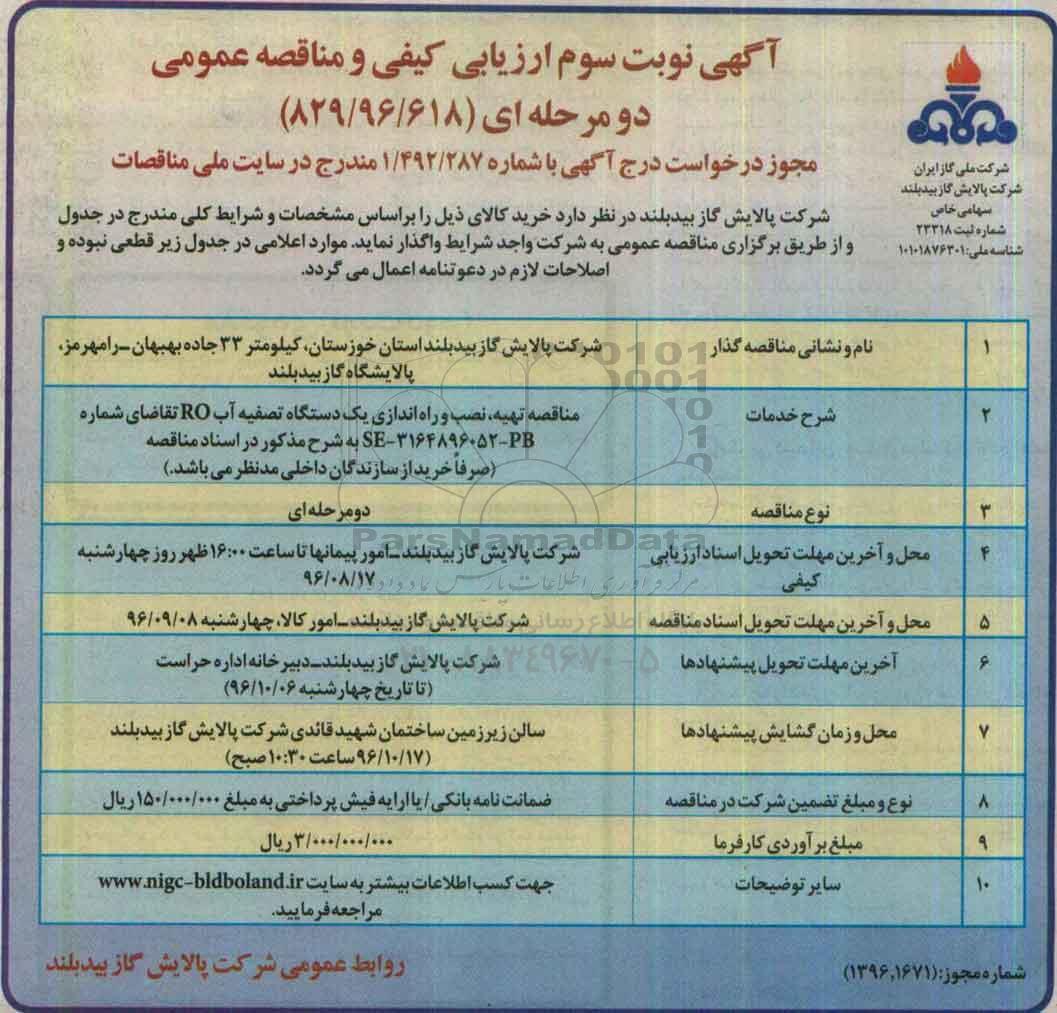 آگهی نوبت سوم ارزیابی کیفی و مناقصه عمومی
دو مرحله ای (۸۲۹/۹۶/۶۱۸)
مجوز درخواست درج آگهی با شماره ۱/۴۹۲/۲۸۷ مندرج در سایت ملی مناقصات
شرکت ملی گاز ایران
شرکت پالایش گاز بیدبلند
سهامی خاص
شماره ثبت ۲۲۳۱۸
شناسه ملی: ۱۰۱۰۱۸۷۶۳۰۱
شرکت پالایش گاز بیدبلند در نظر دارد خرید کالای ذیل را براساس مشخصات و شرایط کلی مندرج در جدول
و از طریق برگزاری مناقصه عمومی به شرکت واجد شرایط واگذار نماید. موارد اعلامی در جدول زیر قطعی نبوده و
اصلاحات لازم در دعوتنامه اعمال می گردد.
۱ نام و نشانی مناقصه گذار شرکت پالایش گاز بیدبلند استان خوزستان، کیلومتر ۳۳ جاده بهبهان ـ رامهرمز،
پالایشگاه گاز بیدبلند
۲ شرح خدمات مناقصه تهیه، نصب و راه اندازی یک دستگاه تصفیه آب RO تقاضای شماره
SE-۳۱۶۴۸۹۶۰۵۲-PB به شرح مذکور در اسناد مناقصه
(صرفاً خرید از سازندگان داخلی مدنظر می باشد.)
۳ نوع مناقصه دومرحله ای
۴ محل و آخرین مهلت تحویل اسناد ارزیابی شرکت پالایش گاز بیدبلند ـ امور پیمانها تا ساعت ۱۶:۰۰ ظهر روز چهارشنبه
کیفی ۹۶/۰۸/۱۷
۵ محل و آخرین مهلت تحویل اسناد مناقصه شرکت پالایش گاز بیدبلند ـ امور کالا، چهارشنبه ۹۶/۰۹/۰۸
۶ آخرین مهلت تحویل پیشنهادها شرکت پالایش گاز بیدبلند ـ دبیرخانه اداره حراست
(تا تاریخ چهارشنبه ۹۶/۱۰/۰۶)
۷ محل و زمان گشایش پیشنهادها سالن زیرزمین ساختمان شهید قائدی شرکت پالایش گاز بیدبلند
(۹۶/۱۰/۱۷ ساعت ۱۰:۳۰ صبح)
۸ نوع و مبلغ تضمین شرکت در مناقصه ضمانت نامه بانکی / یا ارایه فیش پرداختی به مبلغ ۱۵۰/۰۰۰/۰۰۰ ریال
۹ مبلغ برآوردی کارفرما ۳/۰۰۰/۰۰۰/۰۰۰ ریال
۱۰ سایر توضیحات جهت کسب اطلاعات بیشتر به سایت www.nigc-bldboland.ir
مراجعه فرمایید.
شماره مجوز: (۱۳۹۶,۱۶۷۱)
روابط عمومی شرکت پالایش گاز بیدبلند
ParsNamadData